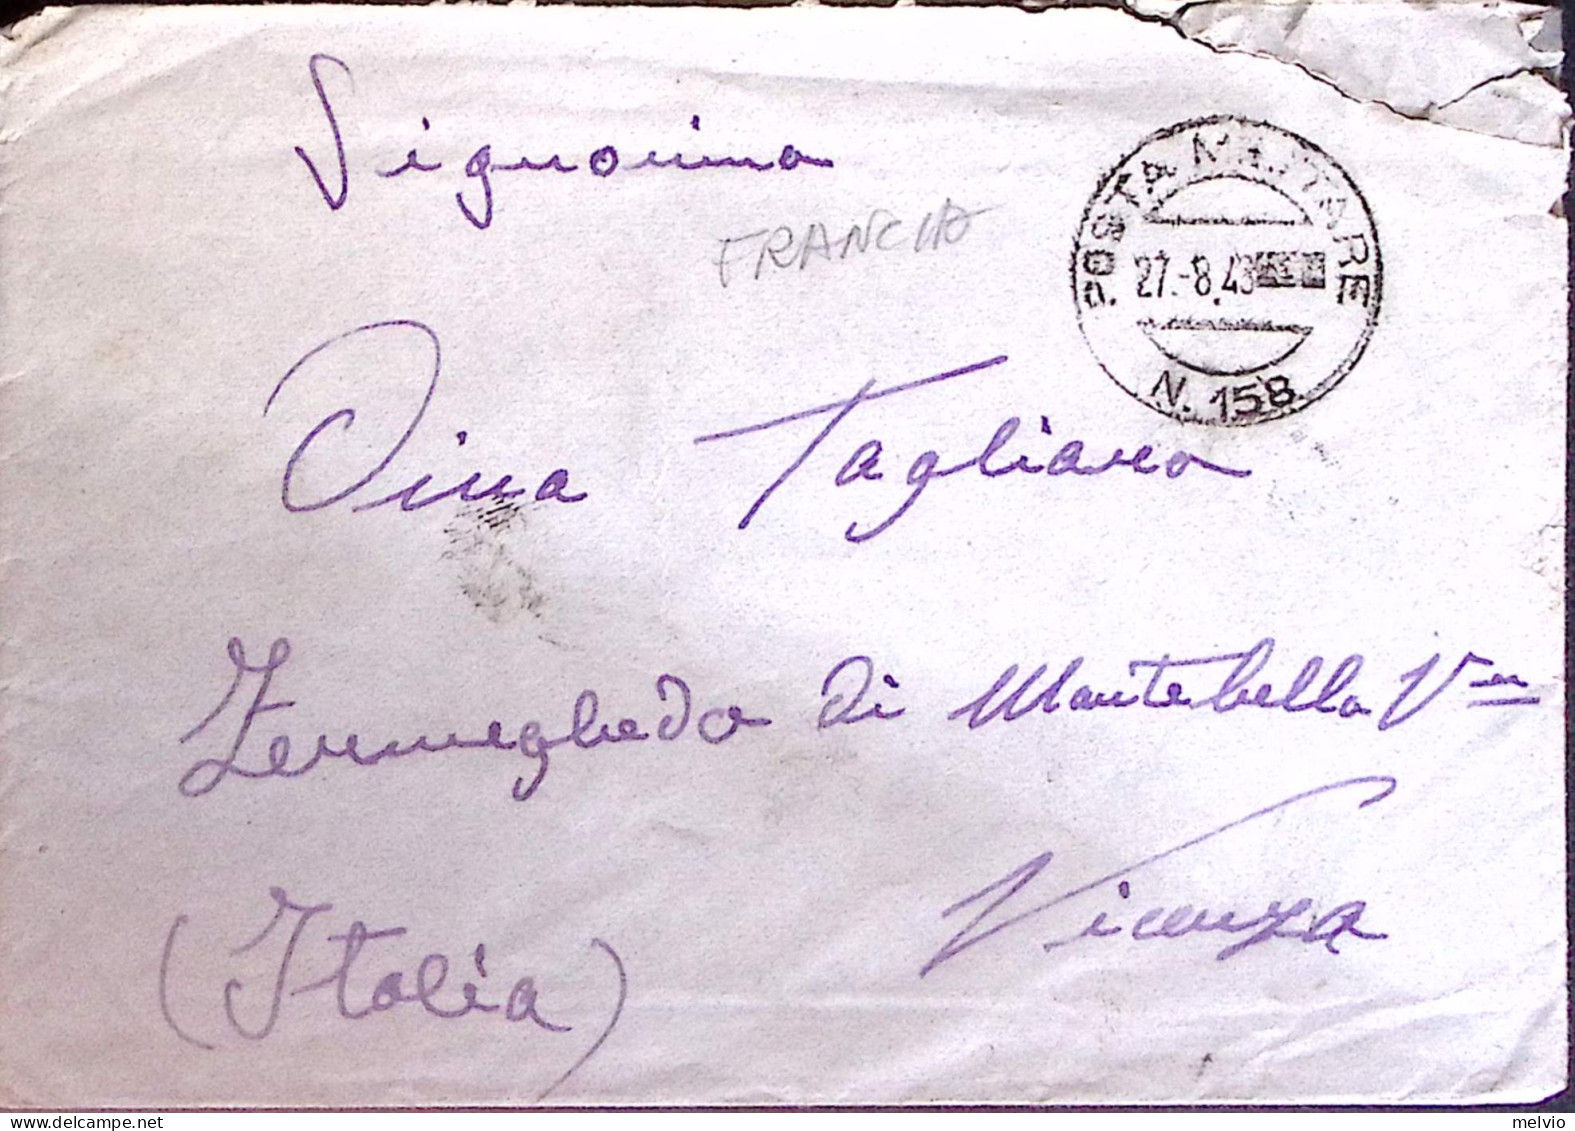 Signorina
FRANCIA
POSTA MILITARE
27.-8.43
N. 158
Dina Tagliaro
Zermeghedo di Montebello Vno
Vicenza
(Italia)
melvio